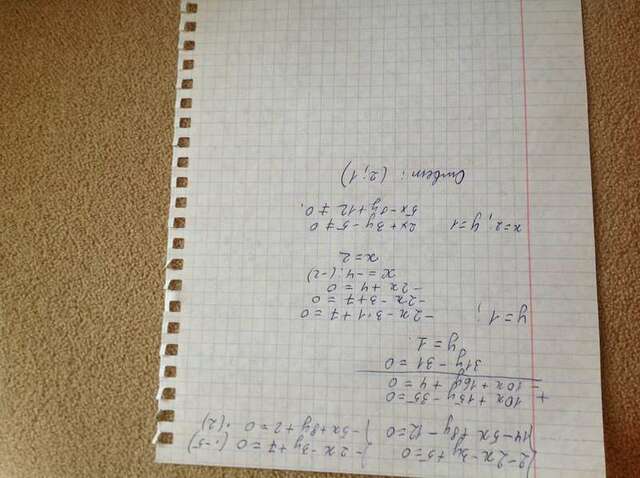 { 2-2x-3y+5=0 { -2x-3y+7=0 (·-5)
{ 14-5x+8y-12=0 { -5x+8y+2=0 ·(2)
+ 10x+15y-35=0
-10x+16y+4=0
31y-31=0
y=1.
y=1; -2x-3·1+7=0
-2x-3+7=0
-2x+4=0
x=-4:(-2)
x=2
x=2; y=1 2x+3y-5≠0
5x-8y+12≠0.
Ответ: (2;1)